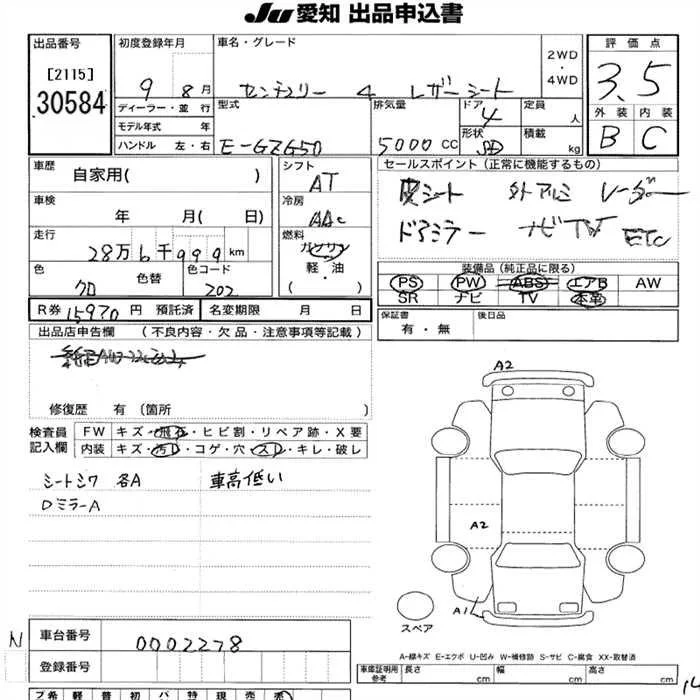 JU 愛知 出品申込書
出品番号 [2115] 30584
初度登録年月 9 8月
車名・グレード センチュリー 4 レザーシート
2WD・4WD
評価点 3.5
外装 B 内装 C
ディーラー・並行
モデル年式 年
ハンドル 左・右
型式 E-GZG50
排気量 5000 CC
ドア 4
形状 SD
定員 人
積載 kg
車歴 自家用( )
車検 年 月( 日)
走行 28万6千999km
色 クロ 色替
色コード 202
シフト AT
冷房 AAC
燃料 ガソリン 軽・油 ( )
セールスポイント(正常に機能するもの)
皮シート 外アルミ レーダー
ドアミラー ナビTV ETC
装備品(純正品に限る)
PS PW ABS エアB AW
SR ナビ TV 本革
R券 15970円 預託済 名変期限 月 日
保証書 有・無 後日品
出品店申告欄 (不良内容・欠品・注意事項等記載)
修復歴 有 〔箇所 〕
検査員記入欄
FW キズ・飛石・ヒビ割・リペア跡・X要
内装 キズ・汚レ・コゲ・穴・スレ・キレ・破レ
シートシワ 各A 車高低い
DミラーA
A2
A2
A1
スペア
N 車台番号 0002278
登録番号
A-線キズ E-エクボ U-凹み W-補修跡 S-サビ C-腐食 XX-取替済
車庫証明用参考 長さ cm 幅 cm 高さ cm